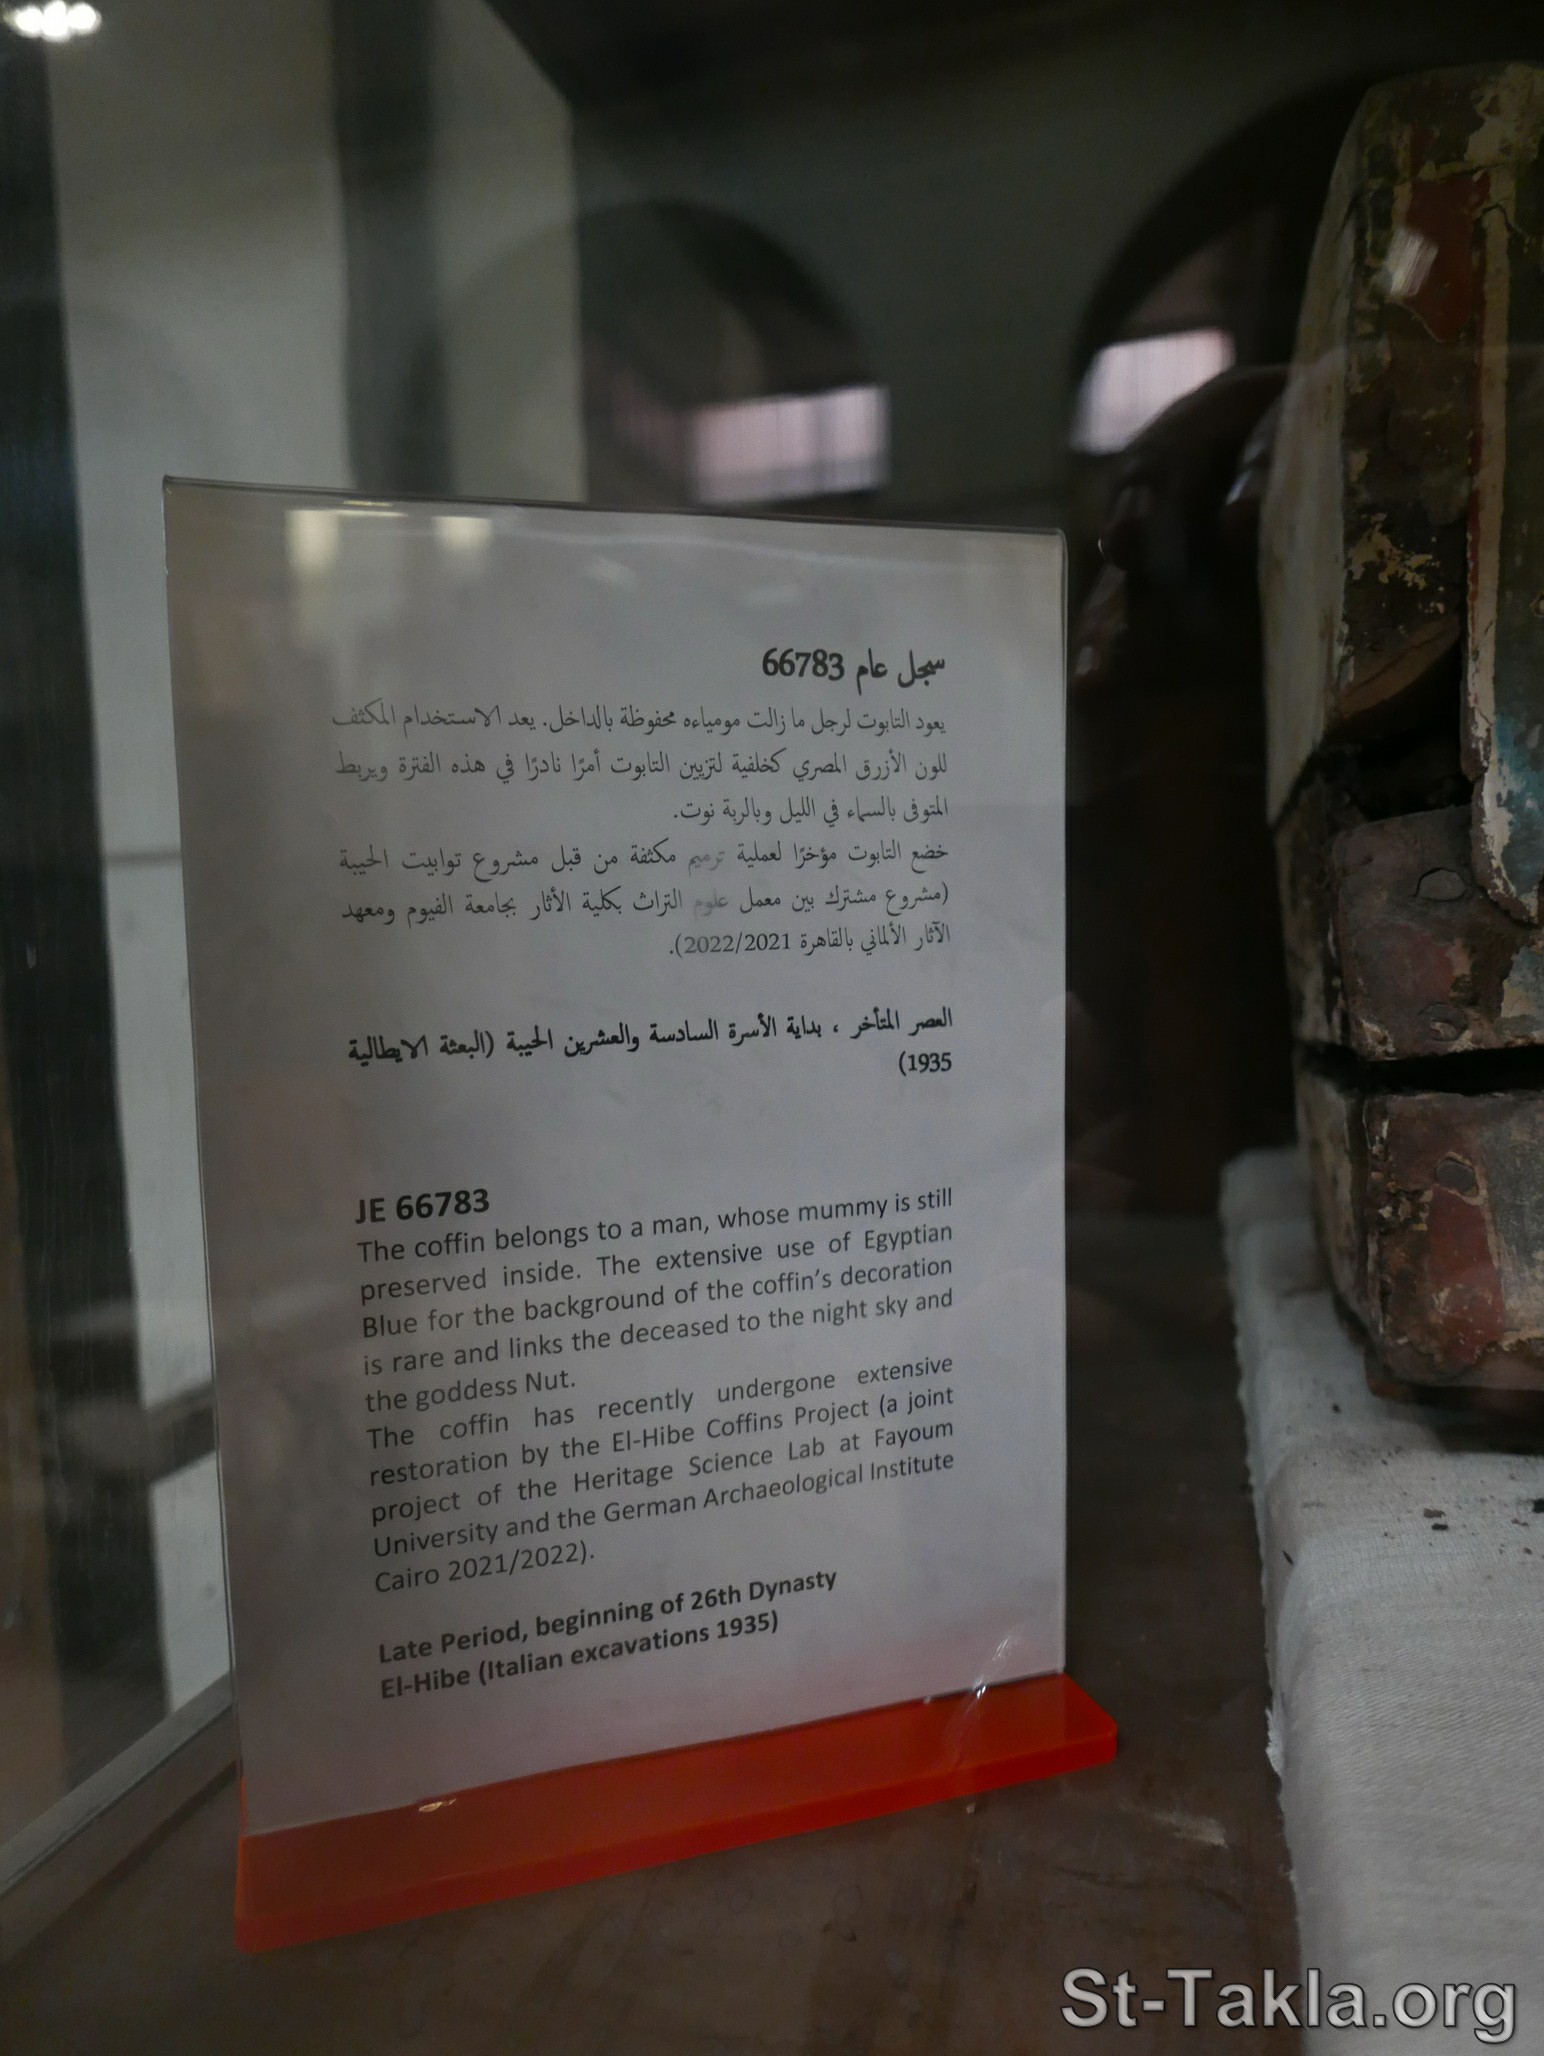 سجل عام 66783
يعود التابوت لرجل ما زالت مومياءه محفوظة بالداخل. يعد الاستخدام المكثف
للون الأزرق المصري كخلفية لتزيين التابوت أمرًا نادرًا في هذه الفترة ويربط
المتوفى بالسماء في الليل وبالربة نوت.
خضع التابوت مؤخرًا لعملية ترميم مكثفة من قبل مشروع توابيت الحيبة
(مشروع مشترك بين معمل علوم التراث بكلية الأثار بجامعة الفيوم ومعهد
الآثار الألماني بالقاهرة 2022/2021).
العصر المتأخر ، بداية الأسرة السادسة والعشرين الحيبة (البعثة الايطالية
1935)
JE 66783
The coffin belongs to a man, whose mummy is still
preserved inside. The extensive use of Egyptian
Blue for the background of the coffin's decoration
is rare and links the deceased to the night sky and
the goddess Nut.
The coffin has recently undergone extensive
restoration by the El-Hibe Coffins Project (a joint
project of the Heritage Science Lab at Fayoum
University and the German Archaeological Institute
Cairo 2021/2022).
Late Period, beginning of 26th Dynasty
El-Hibe (Italian excavations 1935)
St-Takla.org